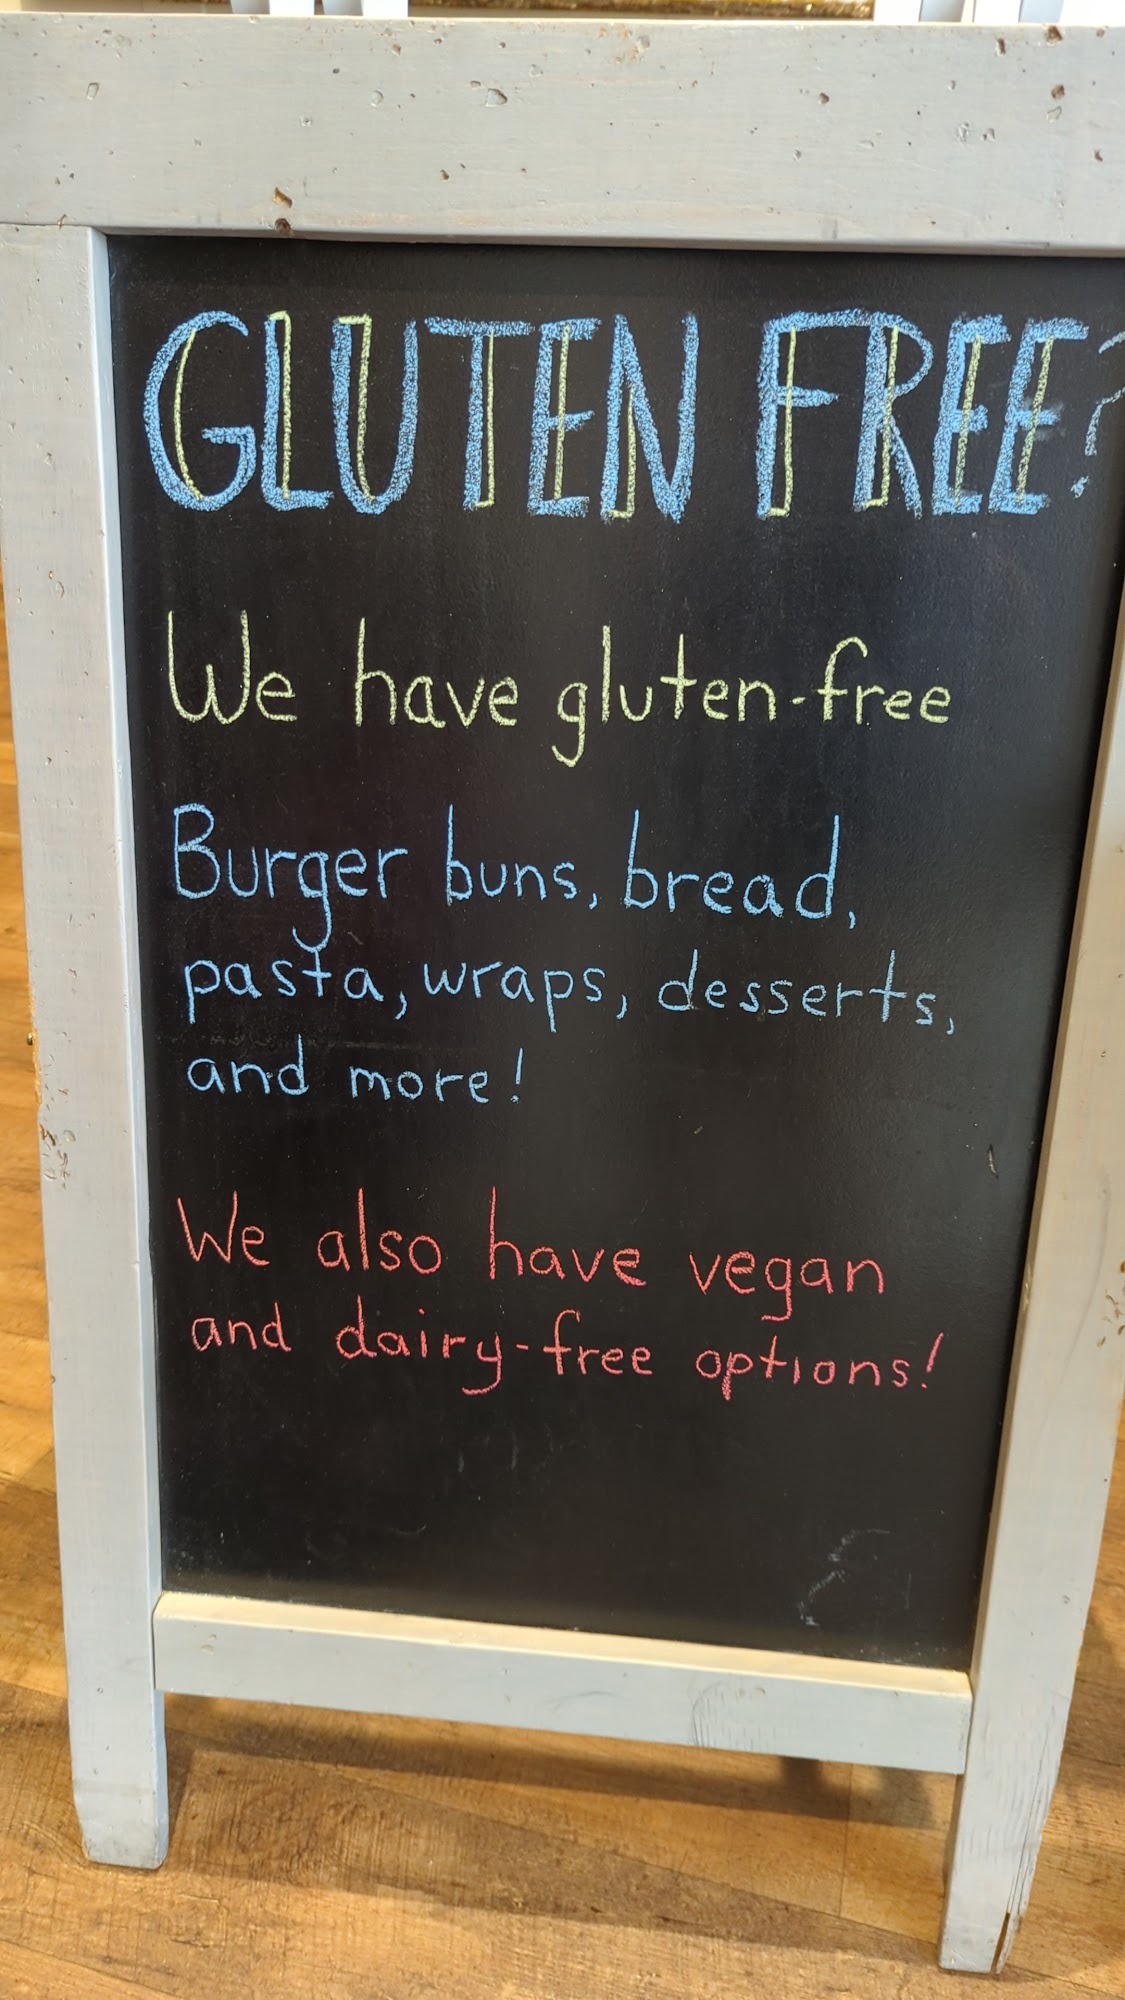 GLUTEN FREE?
We have gluten-free
Burger buns, bread,
pasta, wraps, desserts,
and more!
We also have vegan
and dairy-free options!